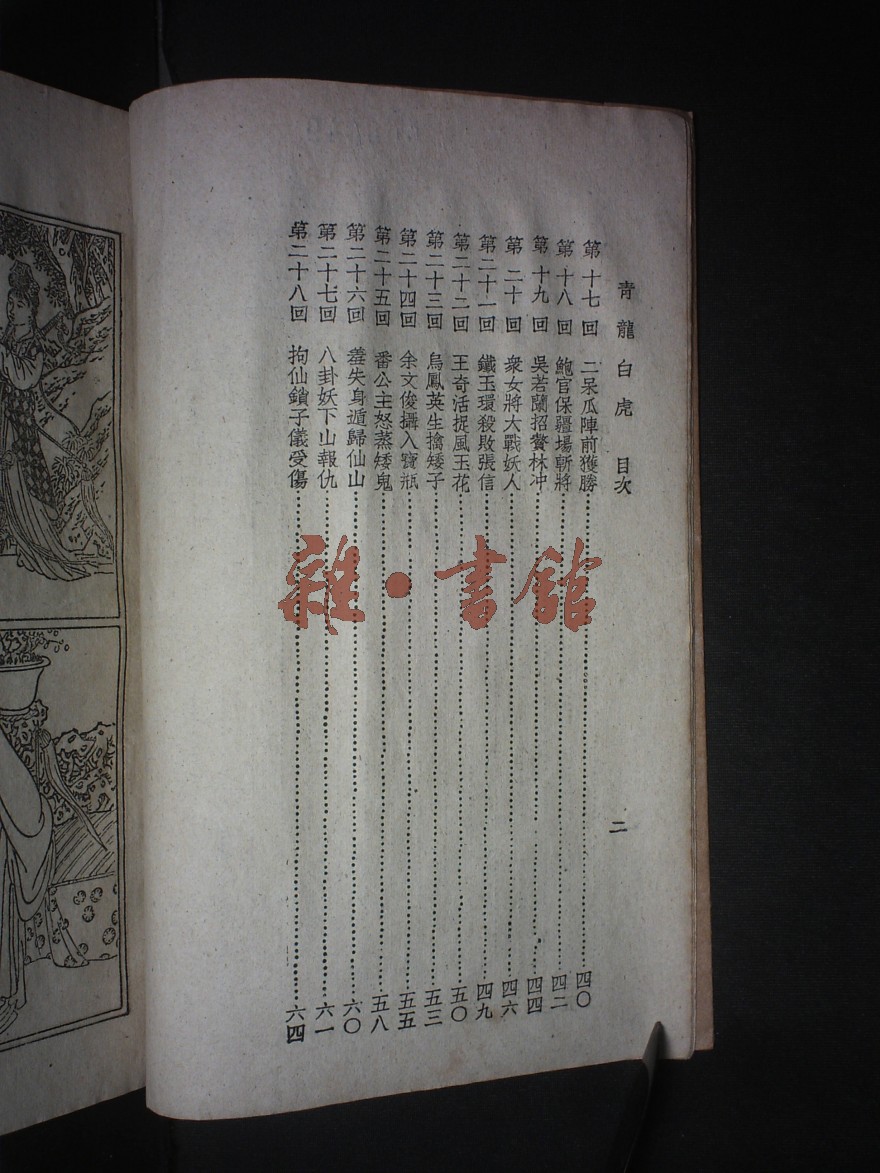 青龍白虎 目次
二
第十七回 二呆瓜陣前獲勝 四〇
第十八回 鮑官保疆場斬將 四二
第十九回 吳若蘭招贅林冲 四四
第二十回 衆女將大戰妖人 四六
第二十一回 鐵玉環殺敗張信 四九
第二十二回 王奇活捉風玉花 五〇
第二十三回 烏鳳英生擒矮子 五三
第二十四回 余文俊攝入寶瓶 五五
第二十五回 番公主怒蒸矮鬼 五八
第二十六回 羞失身遁歸仙山 六〇
第二十七回 八卦妖下山報仇 六一
第二十八回 拘仙鎖子儀受傷 六四
雜·書館